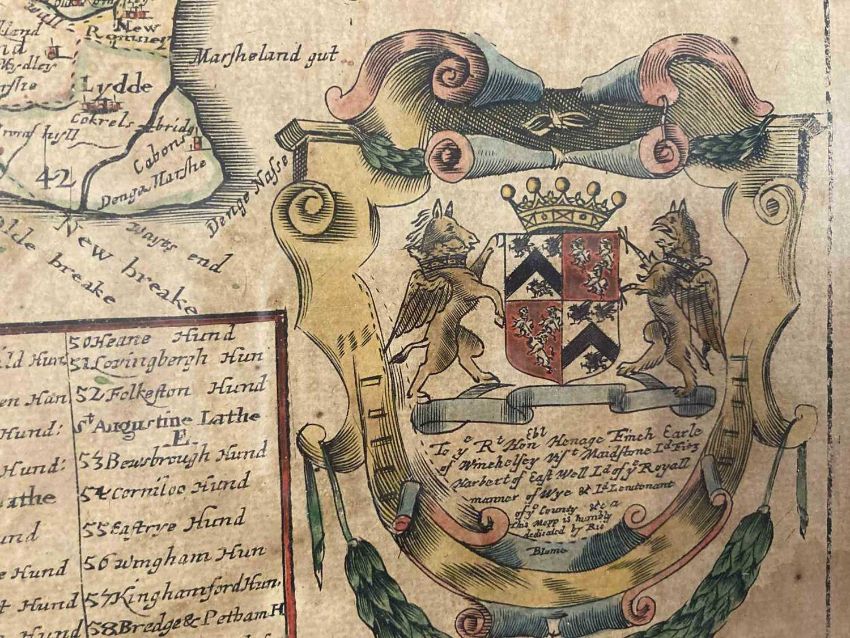 New
Romney
Marsheland gut
Lydde
Cokrels
bridg
hyll
Cabons
42
Denga Marshe
Denge Nasse
Wasts end
New breake
breake
ild Hun
en Han
Hund:
Hund:
athe
und
e Hund
t Hund
Hund
50 Heane Hund
51 Lovingbergh Hun
52 Folkeston Hund
St Augustine Lathe
E
53 Bewsbrough Hund
54 Corniloo Hund
55 Eastrye Hund
56 Wingham Hun
57 Kinghamford Hun.
58 Bredge & Petham H
To ye Rt Honebl Henage Finch Earle
of Winchelsey Vist Maidstone Ld Fitz
Harbert of East Well Ld of ye Royall
mannor of Wye & Ld Lieutonant
of ye County &c a
This Mapp is humbly
dedicated by Ric
Blome